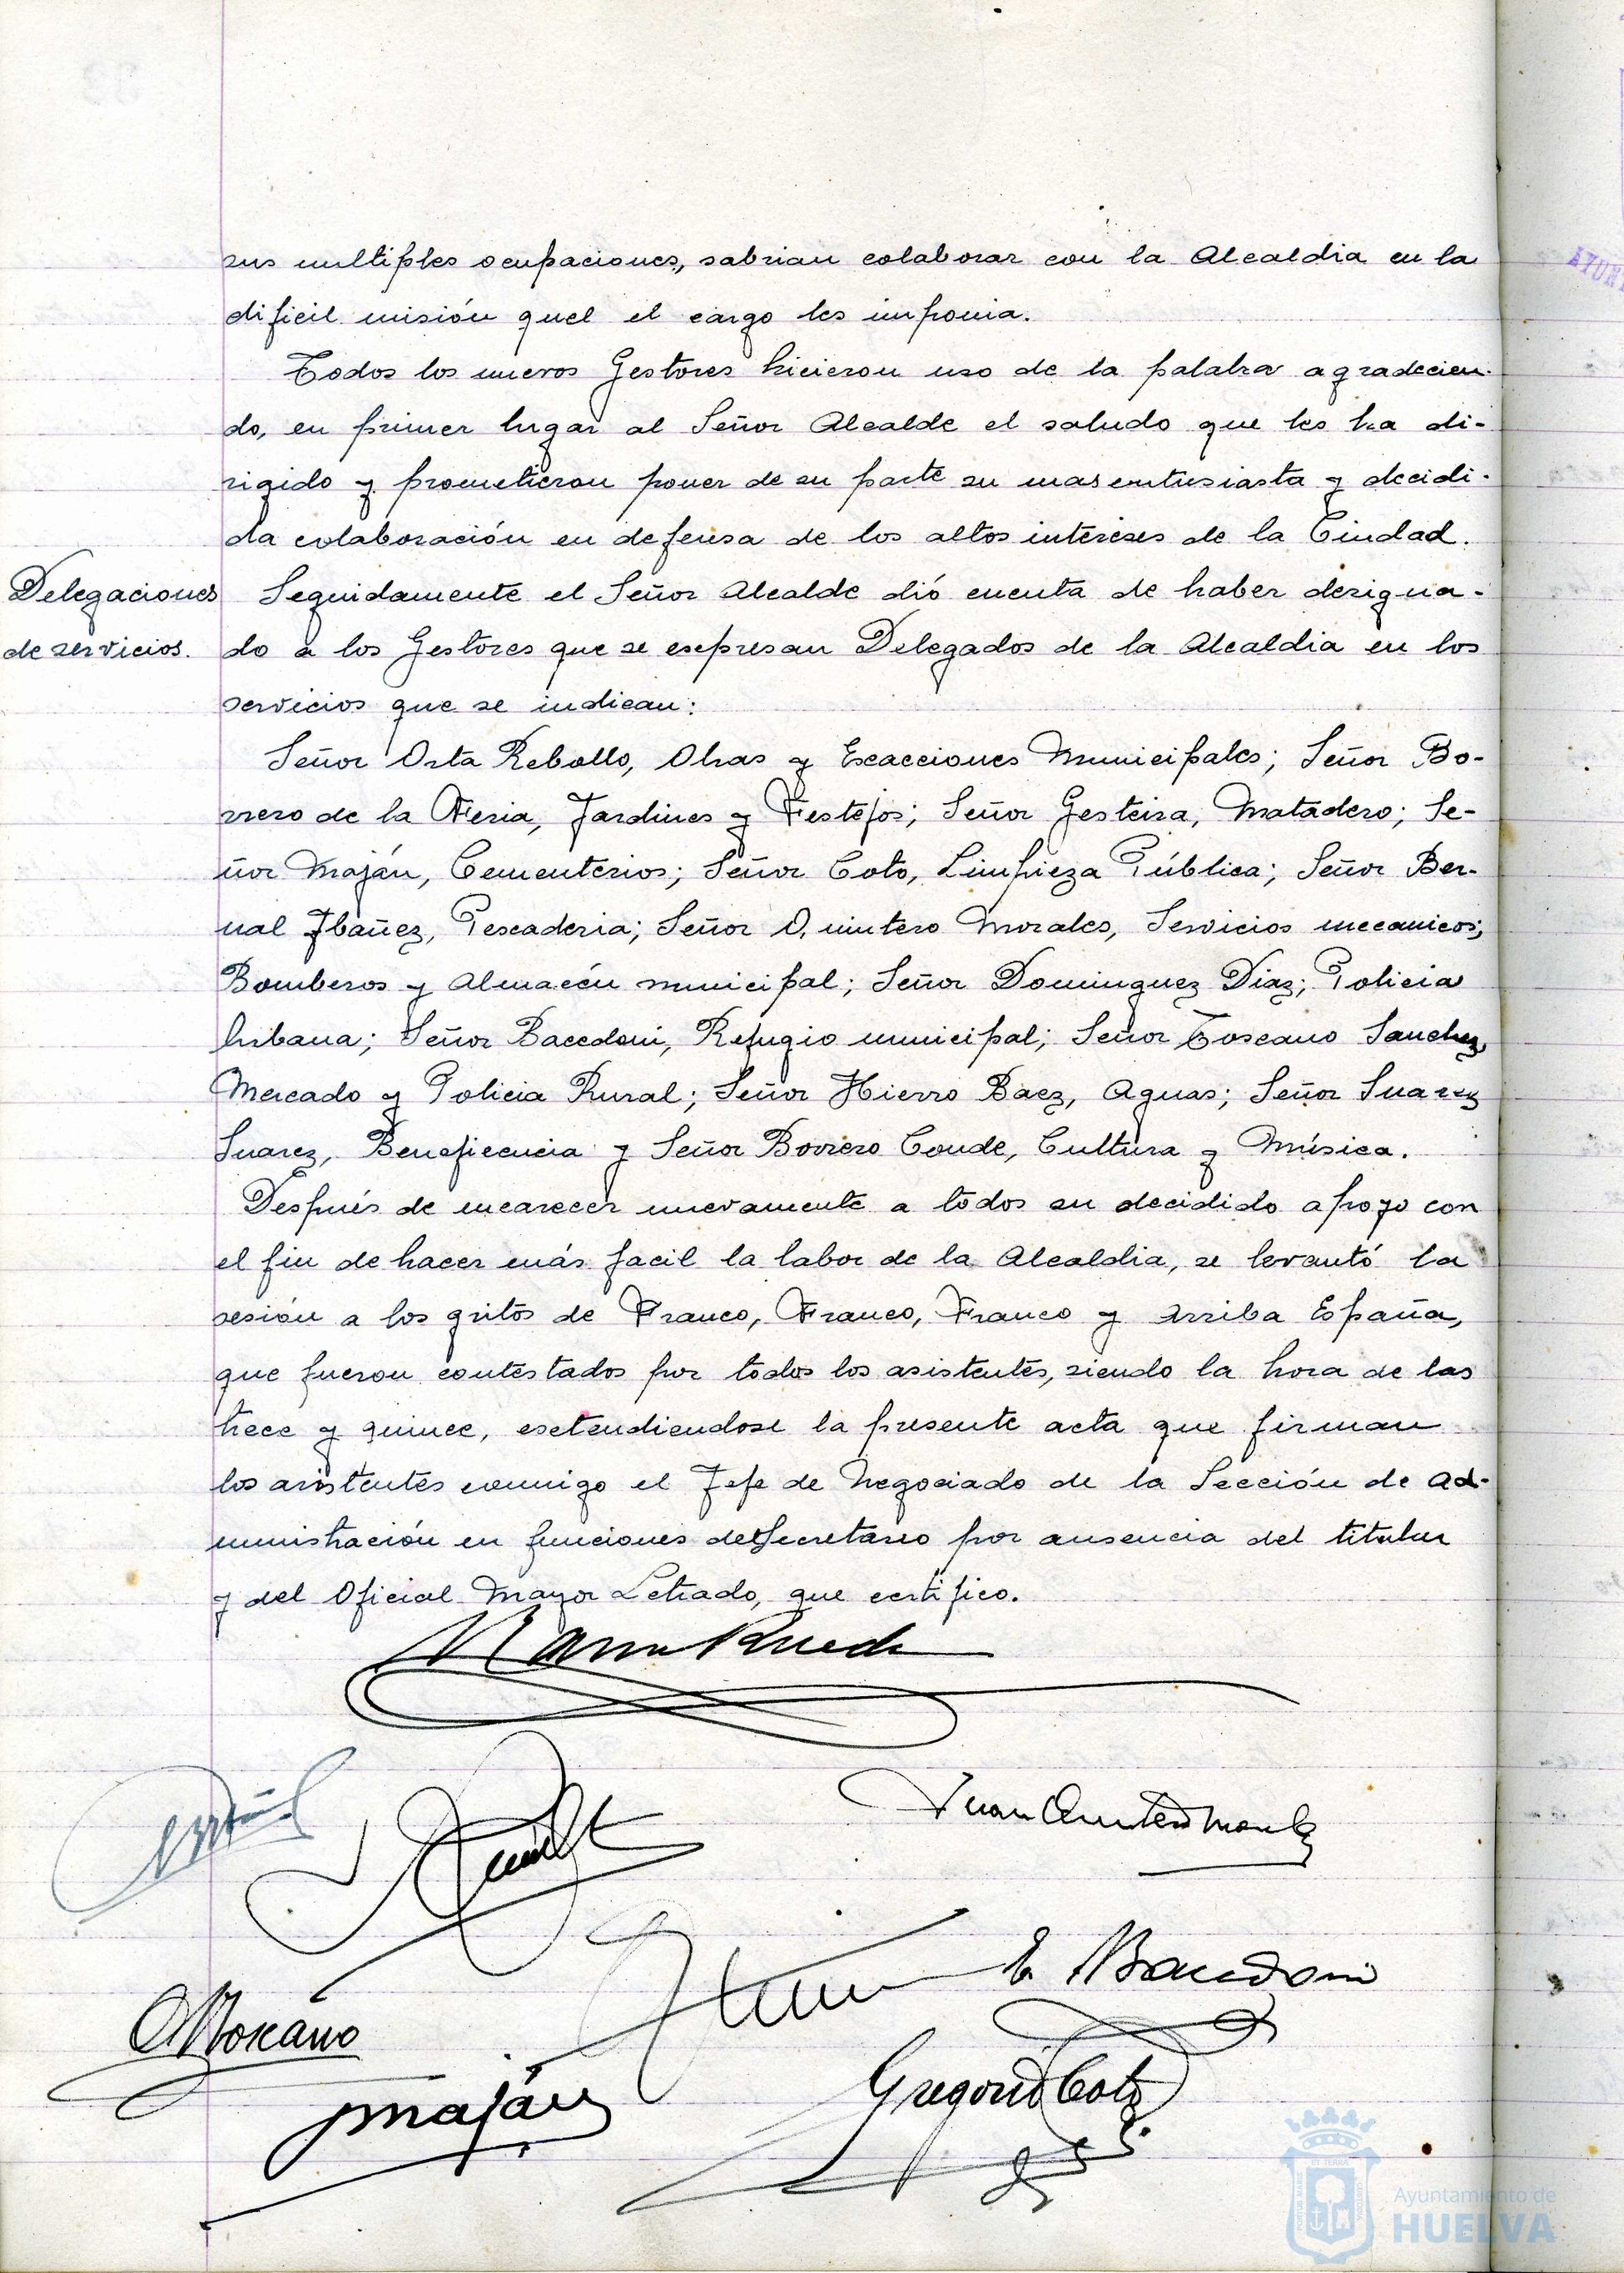 sus multiples ocupaciones, sabrian colaborar con la Alcaldia en la
dificil misión quel el cargo les imponia.
Todos los nuevos Gestores hicieron uso de la palabra agradecien-
do, en primer lugar al Señor Alcalde el saludo que les ha di-
rigido y prometieron poner de su parte su mas entusiasta y decidi-
da colaboración en defensa de los altos intereses de la Ciudad.
Delegaciones
de servicios.
Seguidamente el Señor Alcalde dió cuenta de haber designa-
do a los Gestores que se espresan Delegados de la Alcaldia en los
servicios que se indican:
Señor Orta Rebollo, Obras y Exacciones Municipales; Señor Bo-
rrero de la Feria, Jardines y Festejos; Señor Gesteira, Matadero; Se-
ñor Maján, Cementerios; Señor Coto, Limpieza Pública; Señor Ber-
nal Ibañez, Pescaderia; Señor Quintero Morales, Servicios mecanicos;
Bomberos y Almacén municipal; Señor Dominguez Diaz; Policia
Urbana; Señor Baccdoni, Refugio municipal; Señor Toscano Sanchez,
Mercado y Policia Rural; Señor Hierro Baez, Aguas; Señor Suarez
Suarez, Beneficencia y Señor Borrero Conde, Cultura y Música.
Después de encarecer nuevamente a todos su decidido apoyo con
el fin de hacer más facil la labor de la Alcaldia, se levantó la
sesión a los gritos de Franco, Franco, Franco y Arriba España,
que fueron contestados por todos los asistentes, siendo la hora de las
trece y quince, extendiendose la presente acta que firman
los asistentes conmigo el Jefe de Negociado de la Sección de Ad-
ministración en funciones de Secretario por ausencia del titular
y del Oficial Mayor Letrado, que certifico.
Juan Quintero Morales
E. Baccdoni
Toscano
Maján
Gregorio Coto
Ayuntamiento de
HUELVA